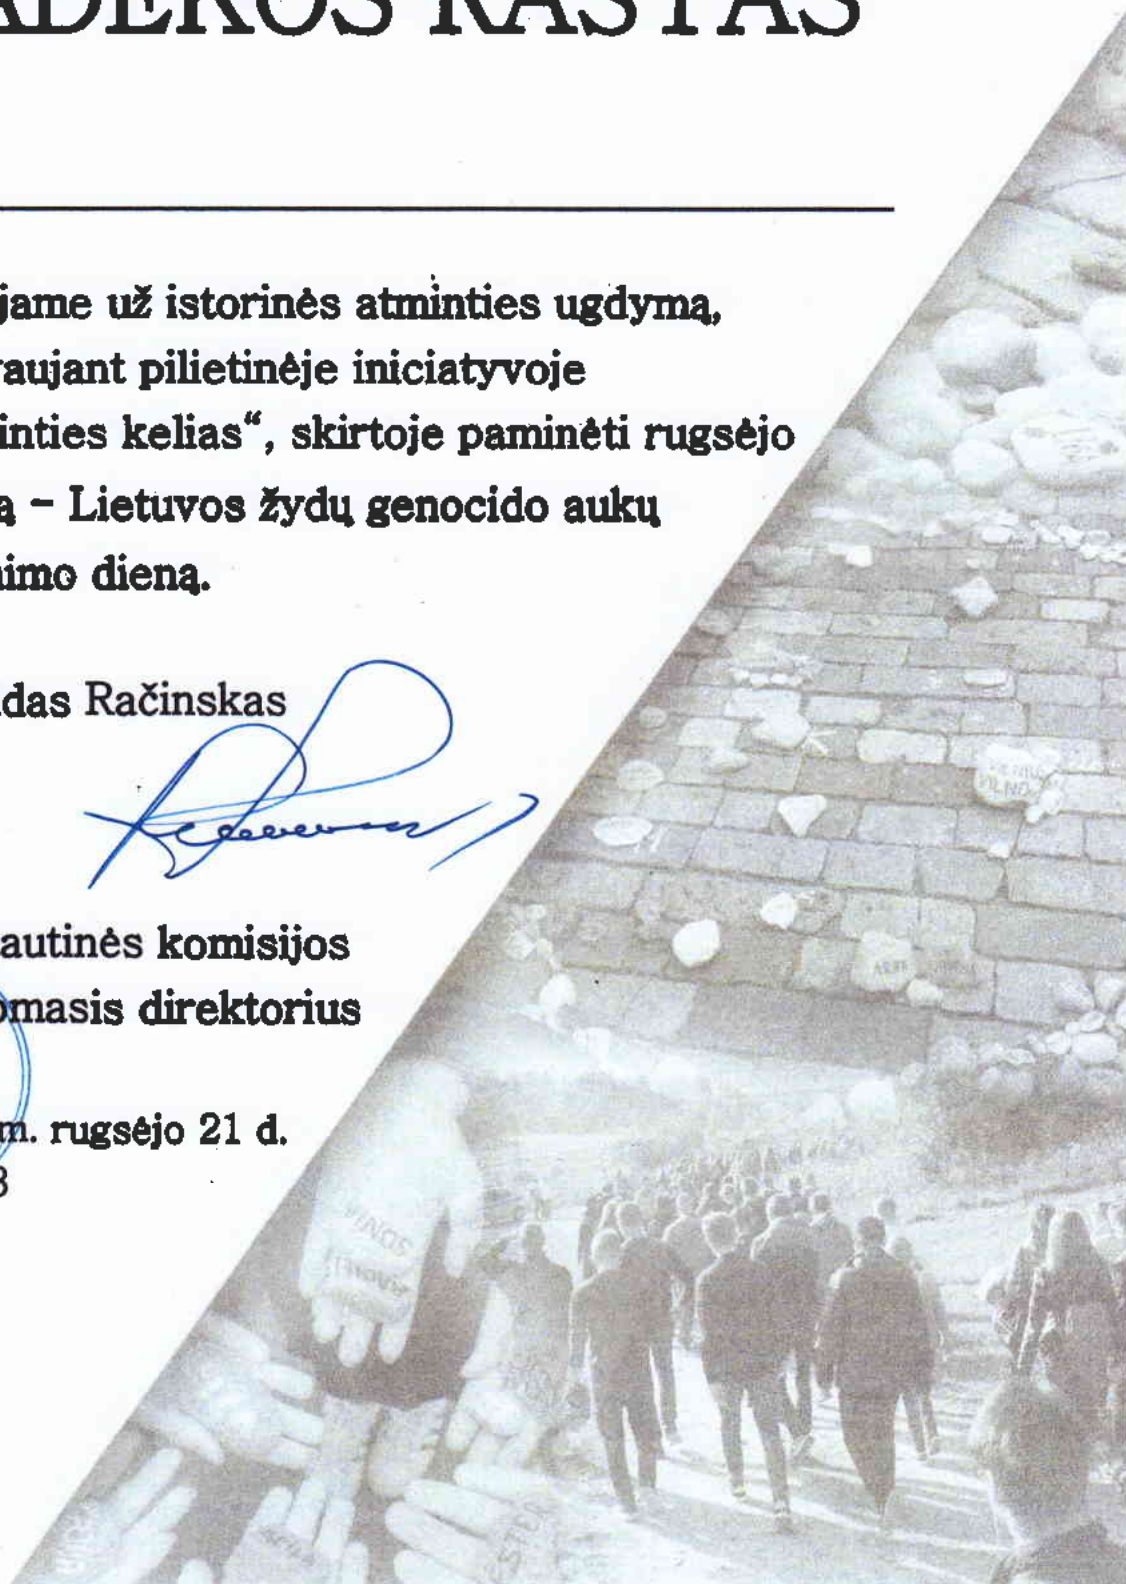 ADĖKOS RAŠTAS
jame už istorinės atminties ugdymą,
raujant pilietinėje iniciatyvoje
inties kelias“, skirtoje paminėti rugsėjo
ą – Lietuvos žydų genocido aukų
nimo dieną.
das Račinskas
autinės komisijos
omasis direktorius
m. rugsėjo 21 d.
3
VILNO